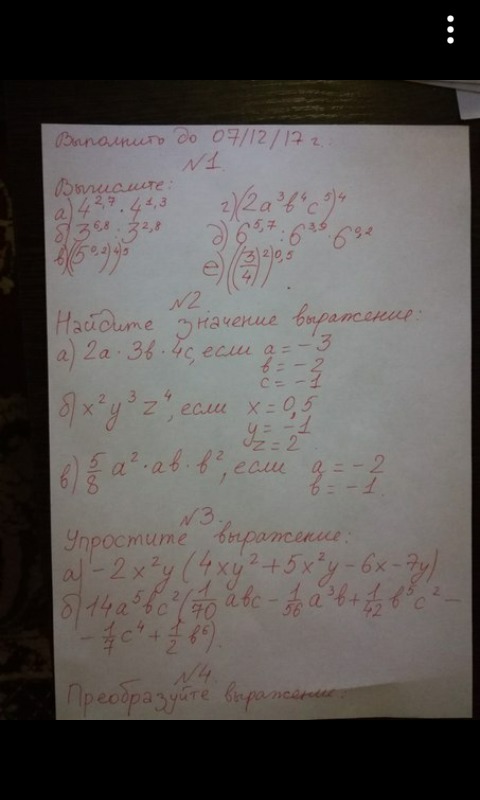 Выполнить до 07/12/17 г.
№1
Вычислите:
а) 4^2,7 · 4^1,3   г) (2a³b⁴c⁵)⁴
б) 3^6,8 : 3^2,8   д) 6^5,7 : 6^3,9 · 6^0,2
в) ((5^0,2)⁴)⁵   е) ((3/4)²)^0,5
№2
Найдите значение выражение:
а) 2a · 3b · 4c, если a = -3
b = -2
c = -1
б) x²y³z⁴, если x = 0,5
y = -1
z = 2
в) 5/8 a² · ab · b², если a = -2
b = -1
№3.
Упростите выражение:
а) -2x²y (4xy² + 5x²y - 6x - 7y)
б) 14a⁵bc² (1/70 abc - 1/56 a³b + 1/42 b⁵c² -
- 1/7 c⁴ + 1/2 b⁶).
№4.
Преобразуйте выражение: